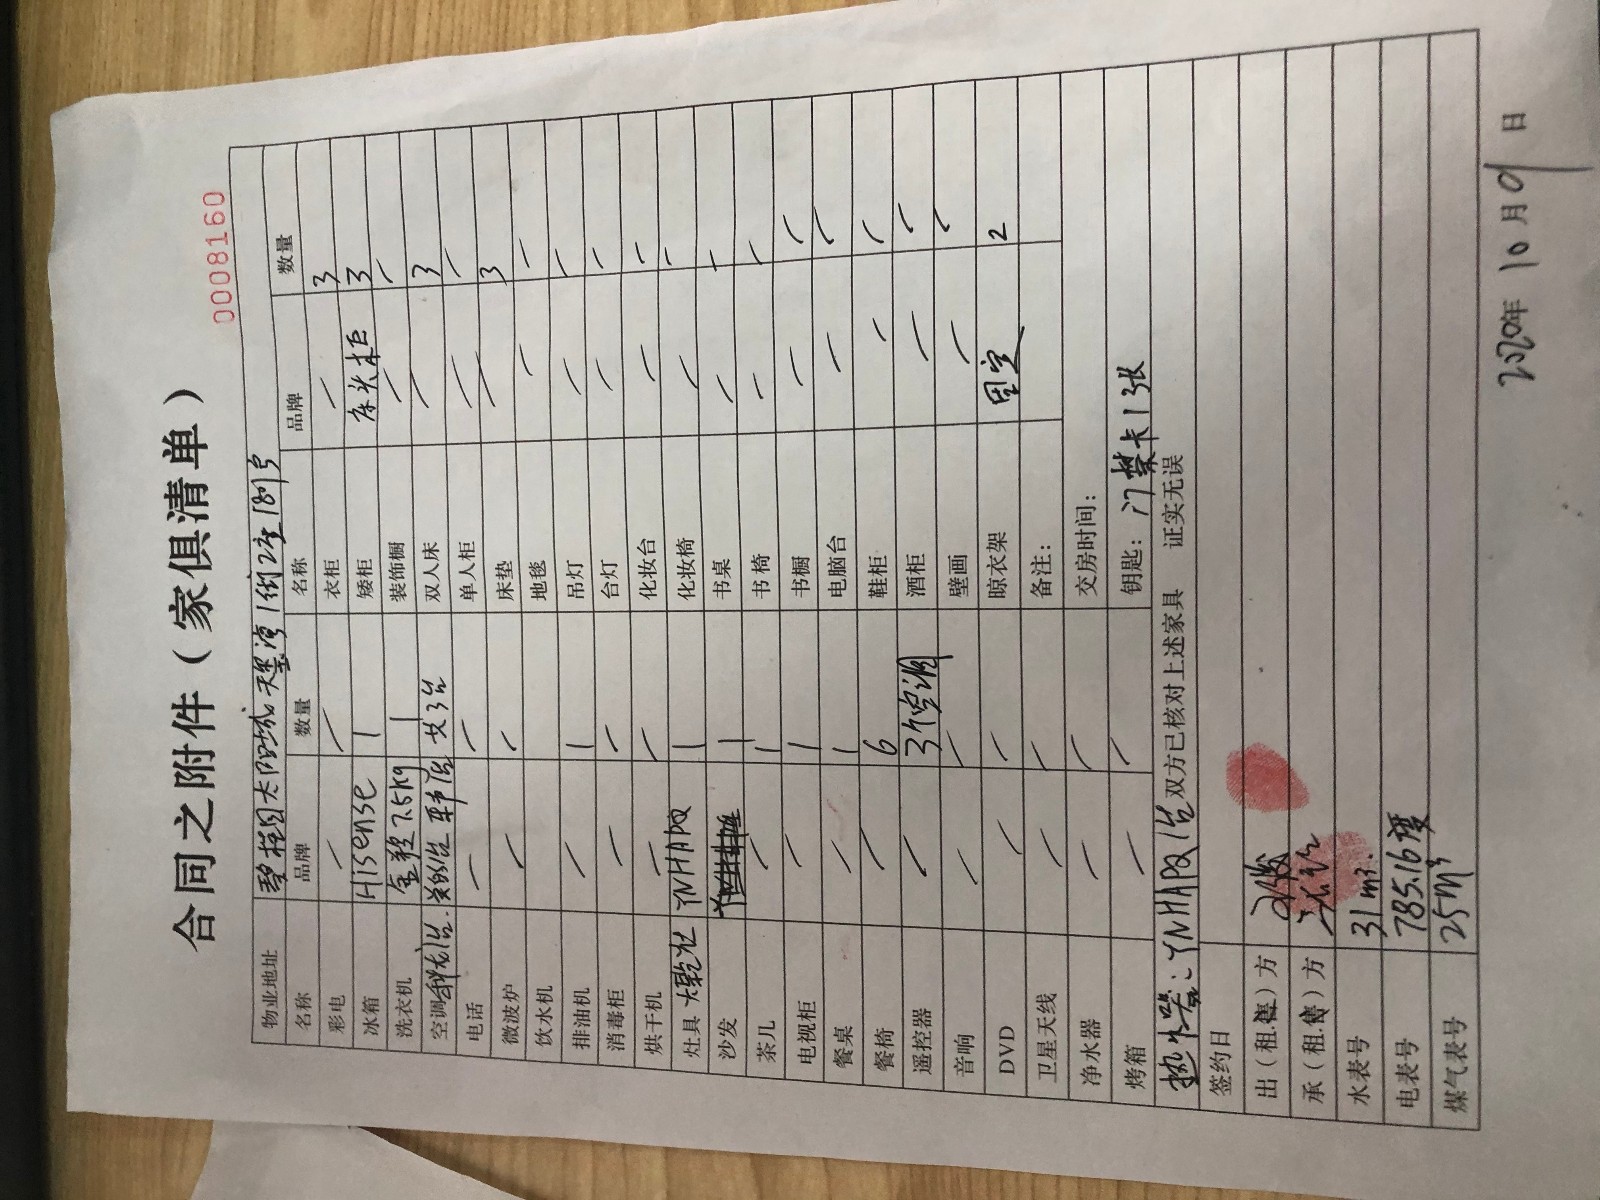 0008160
合同之附件（家俱清单）
物业地址 碧桂园太阳城天墅湾1街2座1809
名称 品牌 数量 名称 品牌 数量
彩电 / / 衣柜 / 3
冰箱 Hisense 1 矮柜 床头柜 3
洗衣机 7.5kg 1 装饰橱 / /
空调 共3台 双人床 / 3
电话 / / 单人柜 / /
微波炉 / / 床垫 / 3
饮水机 地毯 / /
排油机 / 1 吊灯 / /
消毒柜 / / 台灯 / /
烘干机 / / 化妆台 / /
灶具 YNHAPQ 1 化妆椅 / /
沙发 1 书桌 / /
茶几 / 1 书椅 / /
电视柜 / 1 书橱 / /
餐桌 / 1 电脑台 / /
餐椅 / 6 鞋柜 / /
遥控器 / 3个空调 酒柜 / /
音响 / / 壁画 / /
DVD / / 晾衣架 固定 2
卫星天线 / / 备注：
净水器 / / 交房时间：
烤箱 / / 钥匙：门禁卡13张
热水器：YNHAPQ1台 双方已核对上述家具 证实无误
签约日
出（租.售）方
承（租.售）方
水表号 31m³.
电表号 785.16度
煤气表号 25m³
2020年10月01日